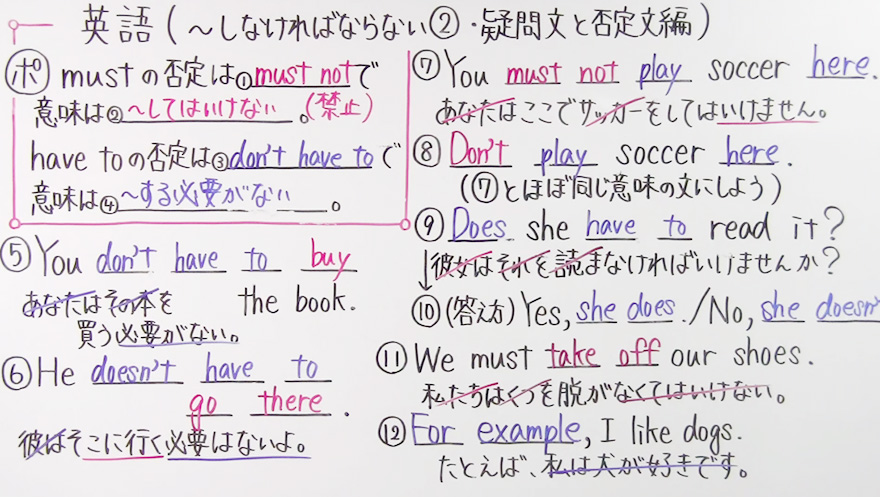 英語(〜しなければならない②・疑問文と否定文編)
ポ mustの否定は①must notで
意味は②〜してはいけない。(禁止)
have toの否定は③don't have toで
意味は④〜する必要がない。
⑤You don't have to buy
the book.
あなたはその本を
買う必要がない。
⑥He doesn't have to
go there.
彼はそこに行く必要はないよ。
⑦You must not play soccer here.
あなたはここでサッカーをしてはいけません。
⑧Don't play soccer here.
(⑦とほぼ同じ意味の文にしよう)
⑨Does she have to read it?
彼女はそれを読まなければいけませんか?
⑩(答え方)Yes, she does./No, she doesn'
⑪We must take off our shoes.
私たちはくつを脱がなくてはいけない。
⑫For example, I like dogs.
たとえば、私は犬が好きです。